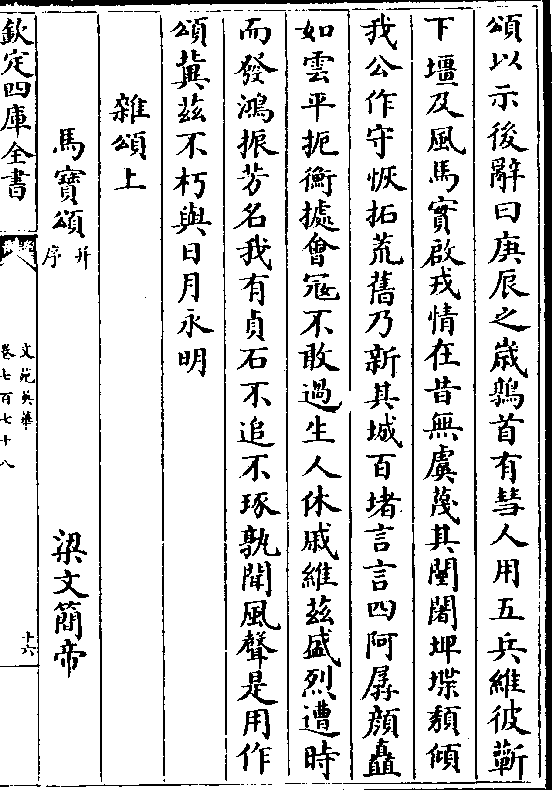 頌以示後辭曰庚辰之歲鶉首有彗人用五兵維彼蘄
下壃及風馬實啟戎情在昔無虞蔑其闉闍埤堞頽傾
我公作守恢拓荒舊乃新其城百堵言言四阿孱顔矗
如雲平扼衡據會冦不敢過生人休戚維茲盛烈遭時
而發鴻振芳名我有貞石不追不琢孰聞風聲是用作
頌冀茲不朽與日月永明
雜頌上
馬寶頌并序 梁文簡帝
欽定四庫全書
文苑英華
卷七百七十八
十六